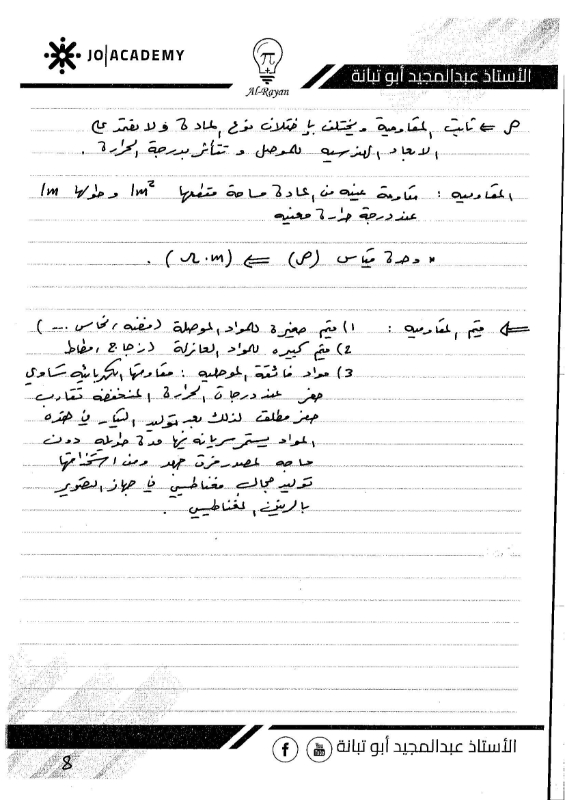 JO|ACADEMY
Al-Rayan
الأستاذ عبدالمجيد أبو تبانة
م ⇐ ثابت المقاومية ويختلف بإختلاف نوع المادة ولا يعتمد على
الابعاد الهندسيه للموصل و تتأثر بدرجة الحرارة .
المقاوميه : مقاومة عينه من المادة مساحة مقطعها 1m² وطولها 1m
عند درجة حرارة معينه
* وحدة قياس (م) ⇐ (Ω.m) .
⇐ قيم المقاوميه : 1) قيم صغيرة للمواد الموصلة (فضه ، نحاس ...)
2) قيم كبيره للمواد العازلة (زجاج ، مطاط
3) مواد فائقة الموصليه : مقاومتها الكهربائيه تساوي
صفر عند درجات الحرارة المنخفضة تقارب
صفر مطلق لذلك بعد توليد التيار في هذه
المواد يستمر سريانه فيها مدة طويله دون
حاجه لمصدر فرق جهد ومن استخدامتها
توليد مجال مغناطيسي في جهاز التصوير
بالرنين المغناطيسي .
الأستاذ عبدالمجيد أبو تبانة
8